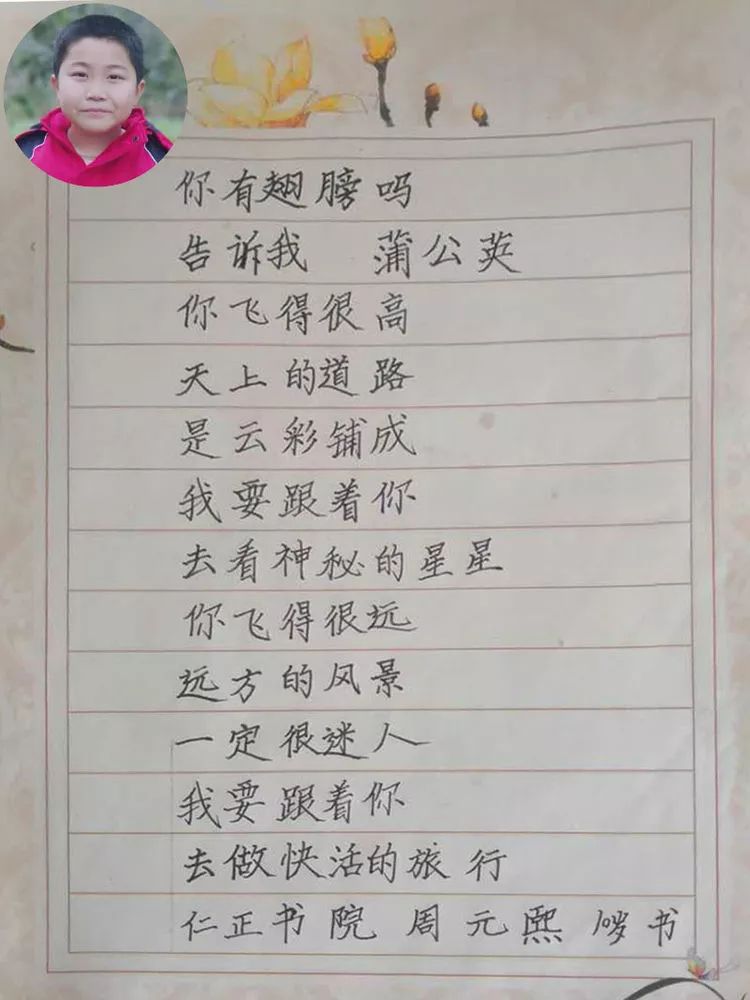 你有翅膀吗
告诉我 蒲公英
你飞得很高
天上的道路
是云彩铺成
我要跟着你
去看神秘的星星
你飞得很远
远方的风景
一定很迷人
我要跟着你
去做快活的旅行
仁正书院 周元熙 书